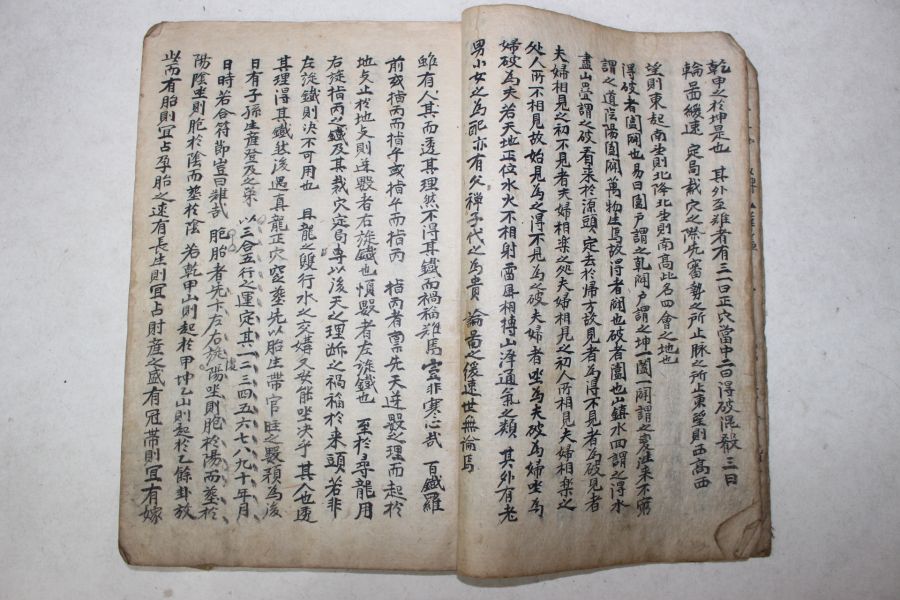 乾甲之於坤是也 其外至難者有三一曰正穴當中二曰得破混殺三曰
輪啚緩速 定局裁穴之際先審勢之所止脉之所止東望則西高西
望則東起南坐則北降北坐則南高此名四會之地也
得破者闔闢也易曰闔戶謂之乾闢戶謂之坤一闔一闢謂之變往來不窮
謂之道陰陽闔闢萬物生焉故得者闢也破者闔也山鎮水四謂之得水
盡山疊謂之破看來於源頭定去於歸方故見者為得不見者為破見者
夫婦相見之初不見者夫婦相樂之処夫婦相見之初人所相見夫婦相樂之
処人所不相見故始見為之得不見為之破夫婦者坐為夫破為婦坐為
婦破為夫若天地正位水火不相射雷風相搏山澤通氣之類 其外有老
男小女之為配亦有父禪子代之為貴 論啚之緩速世無論焉
雖有人其而透其理然不得其鐵而禍福雜焉豈非寒心哉 百鐵羅
前或指丙而指午或指午而指丙 指丙者禀先天逆數之理而起於
地支止於地支則逆數者右旋鐵也順數者左旋鐵也 至於尋龍用
右旋指丙之鐵及其裁穴定局專以後天之理斷之禍福於來頭若非
左旋鐵則決不可用也 且龍之雙行水之交媾又安能坐決乎 其人也透
其理得其鐵然後遇真龍正穴窆葬先以胎生帶官旺之數預為後
日有子孫生產登及之築 以三合五行之運定其一二三四五六七八九十年月
日時若合符節豈曰難哉 胞胎者先下左右旋陽坐則胞於陽而葬於
陽陰坐則胞於陰而葬於陰 若乾甲山則起於甲坤乙山則起於乙餘卦放
此而有胎則宜占孕胎之速有長生則宜占財產之盛有冠帶則宜有嫁